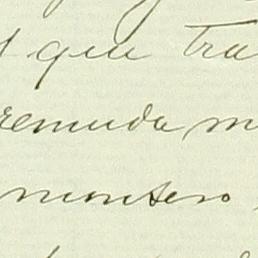 que tra
remuda m
montero